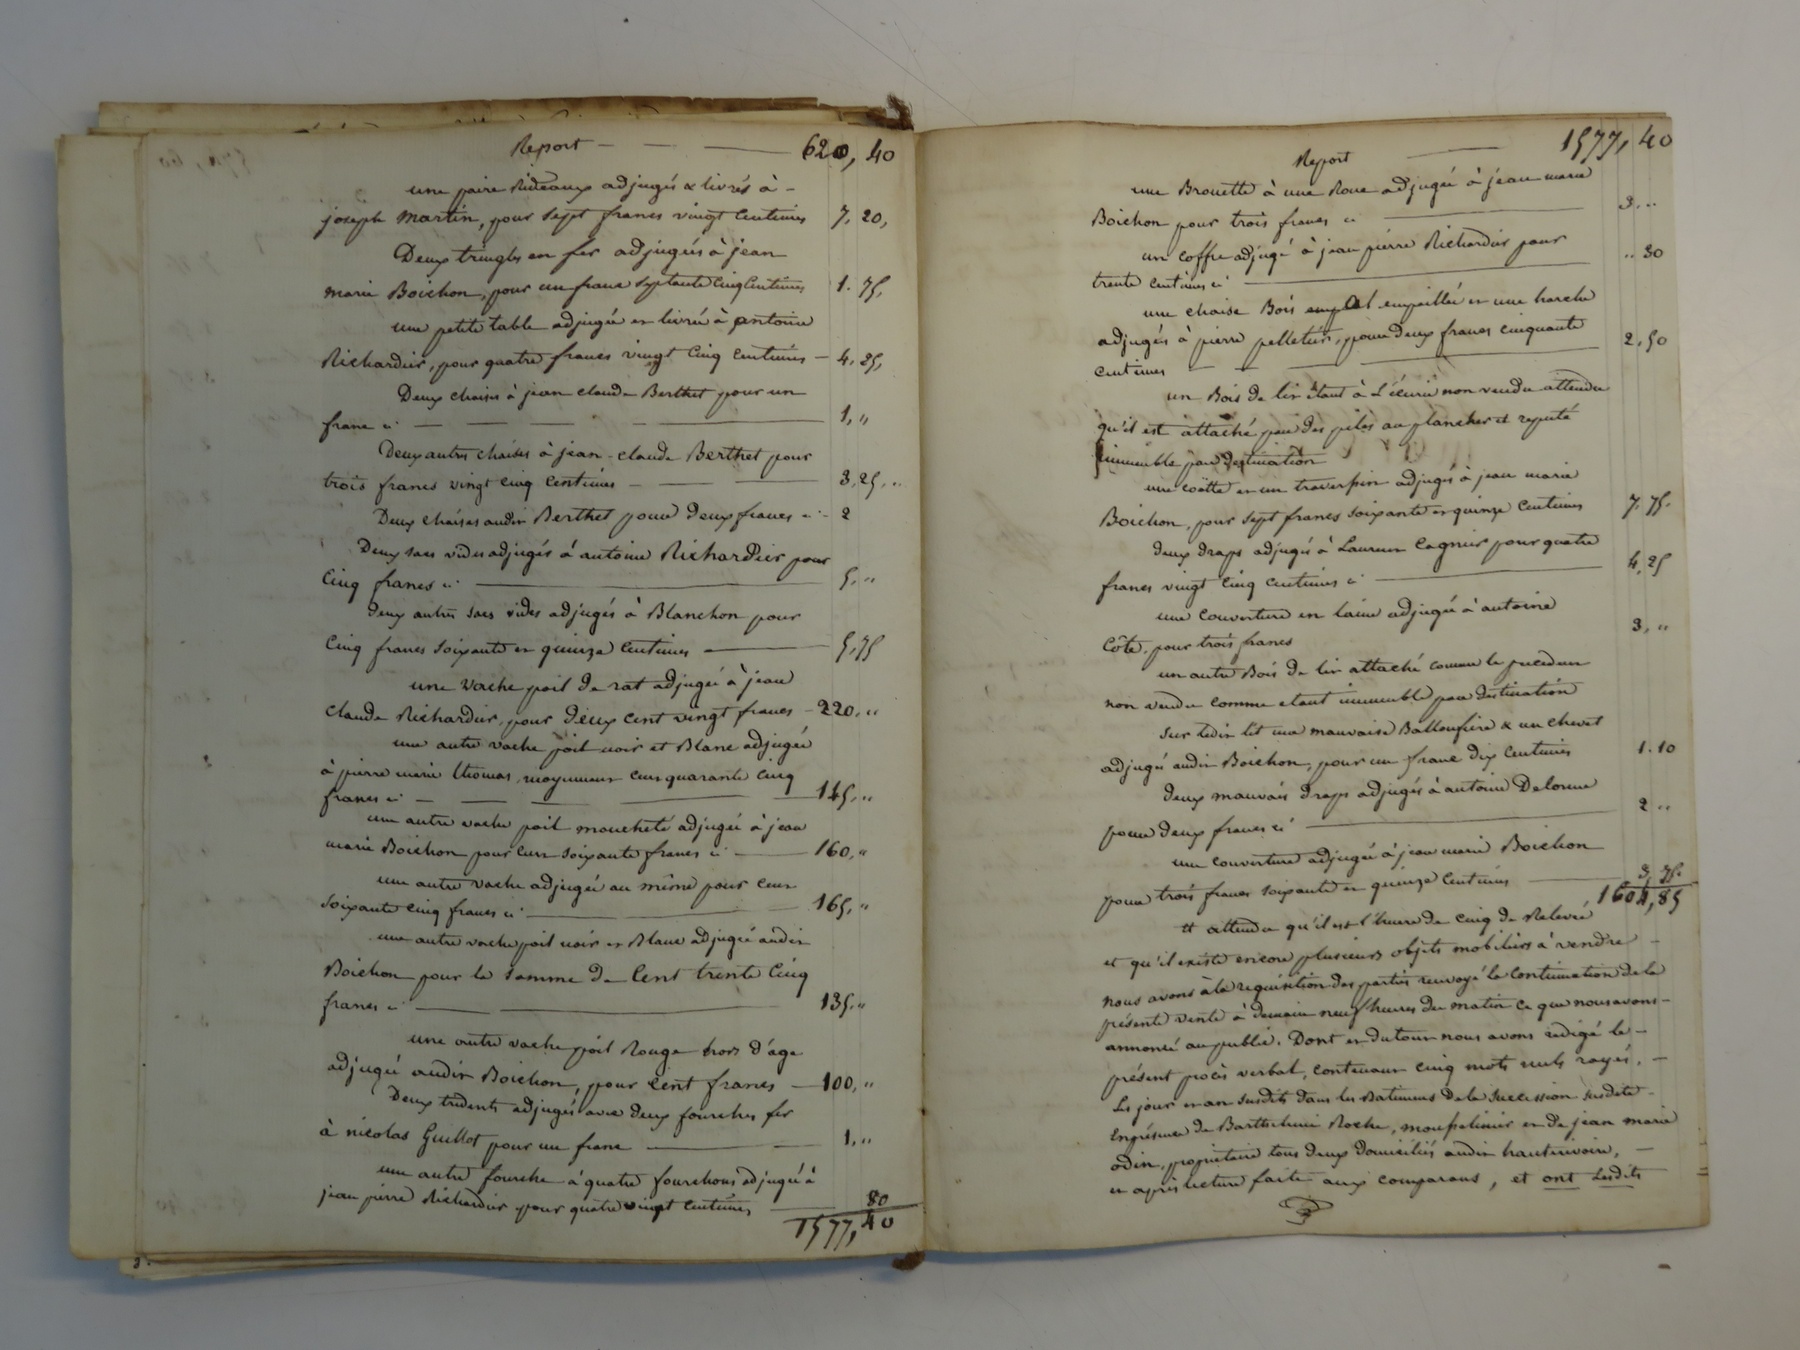 Report 620, 40
une paire Rideaux adjugés & livrés à
joseph Martin, pour sept francs vingt Centimes 7, 20,
Deux tringles en fer adjugés à jean
marie Boichon, pour un franc septante cinq Centimes 1. 75,
une petite table adjugée et livrée à antoine
Richardier, pour quatre francs vingt Cinq Centimes 4, 25,
Deux chaises à jean claude Berthet pour un
franc ci 1, "
Deux autres chaises à jean-claude Berthet pour
trois francs vingt cinq Centimes 3, 25, "
Deux chaises audit Berthet pour deux francs ci 2
Deux sacs vides adjugés à antoine Richardier pour
Cinq francs ci 5, "
deux autres sacs vides adjugés à Blanchon pour
Cinq francs soixante et quinze Centimes 5, 75
une vache poil de rat adjugée à jean
claude Richardier, pour deux cent vingt francs 220, "
une autre vache poil noir et Blanc adjugée
à pierre marie thomas, moyennant cent quarante cinq
francs ci 145, "
une autre vache poil moucheté adjugée à jean
marie Boichon pour cent soixante francs ci 160, "
une autre vache adjugée au même pour cent
soixante cinq francs ci 165, "
une autre vache poil noir et Blanc adjugée audit
Boichon pour la somme de Cent trente Cinq
francs ci 135, "
une autre vache poil Rouge hors d'age
adjugée audit Boichon, pour Cent francs 100, "
Deux tridents adjugés avec deux fourches fer
à nicolas Guillot pour un franc 1, "
une autre fourche à quatre fourchons adjugée à
jean pierre Richardier pour quatre vingt centimes 80
1577, 40
Report 1577, 40
une Brouette à une Roue adjugée à jean marie
Boichon pour trois francs ci 3. "
un coffre adjugé à jean pierre Richardier pour
trente Centimes ci " 30
une chaise Bois empaillée et une harche
adjugés à pierre pelletier, pour deux francs cinquante
Centimes 2, 50
un Bois de lit étant à L'écurie non vendu attendu
qu'il est attaché par des piles au plancher et reputé
immeuble par destination
une coëtte et un traversin adjugés à jean marie
Boichon, pour sept francs soixante et quinze Centimes 7, 75.
deux draps adjugés à Laurent Cagnier pour quatre
francs vingt Cinq Centimes ci 4, 25
une couverture en laine adjugée à antoine
Côte, pour trois francs 3, "
un autre Bois de lit attaché comme le precedent
non vendu comme etant immeuble par destination
sur ledit lit une mauvaise Balloufière & un chevet
adjugés audit Boichon, pour un franc dix Centimes 1. 10
deux mauvais draps adjugés à antoine Delorme
pour deux francs ci 2 "
une couverture adjugée à jean marie Boichon
pour trois francs soixante et quinze Centimes 3, 75.
1604, 85
Et attendu qu'il est l'heure de cinq de Relevée
et qu'il existe encore plusieurs objets mobiliers à vendre
nous avons à la requisition des parties renvoyé la Continuation de la
présente vente à demain neuf heures du matin ce que nous avons
annoncé au public. Dont et du tour nous avons redigé le
présent procès verbal, contenant cinq mots nuls rayés,
Les jour et an susdits dans les Batiments de la succession susdite
En présence de Barthelemi Roche, et de jean marie
odin, propriétaire tous deux domiciliés audit hauterivoire,
et après lecture faite aux comparans, et ont Lesdits